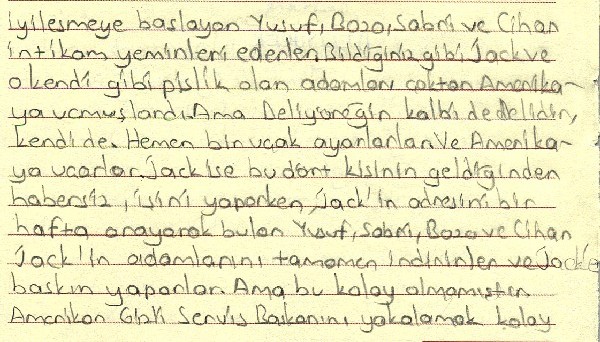 iyileşmeye başlayan Yusuf, Bozo, Sabri ve Cihan
intikam yeminleri ederler. Bildiğiniz gibi Jack ve
o kendi gibi pislik olan adamları çoktan Amerika-
ya uçmuşlardı. Ama Deliyüreğin kalbi de delidir,
kendi de. Hemen bir uçak ayarlarlar. Ve Amerika-
ya uçarlar. Jack ise bu dört kişinin geldiğinden
habersiz, işini yaparken, Jack'in adresini bir
hafta arayarak bulan Yusuf, Sabri, Bozo ve Cihan
Jack'in adamlarını tamamen indirirler ve Jack'e
baskın yaparlar. Ama bu kolay olmamıştır.
Amerikan Gizli Servis Başkanını yakalamak kolay